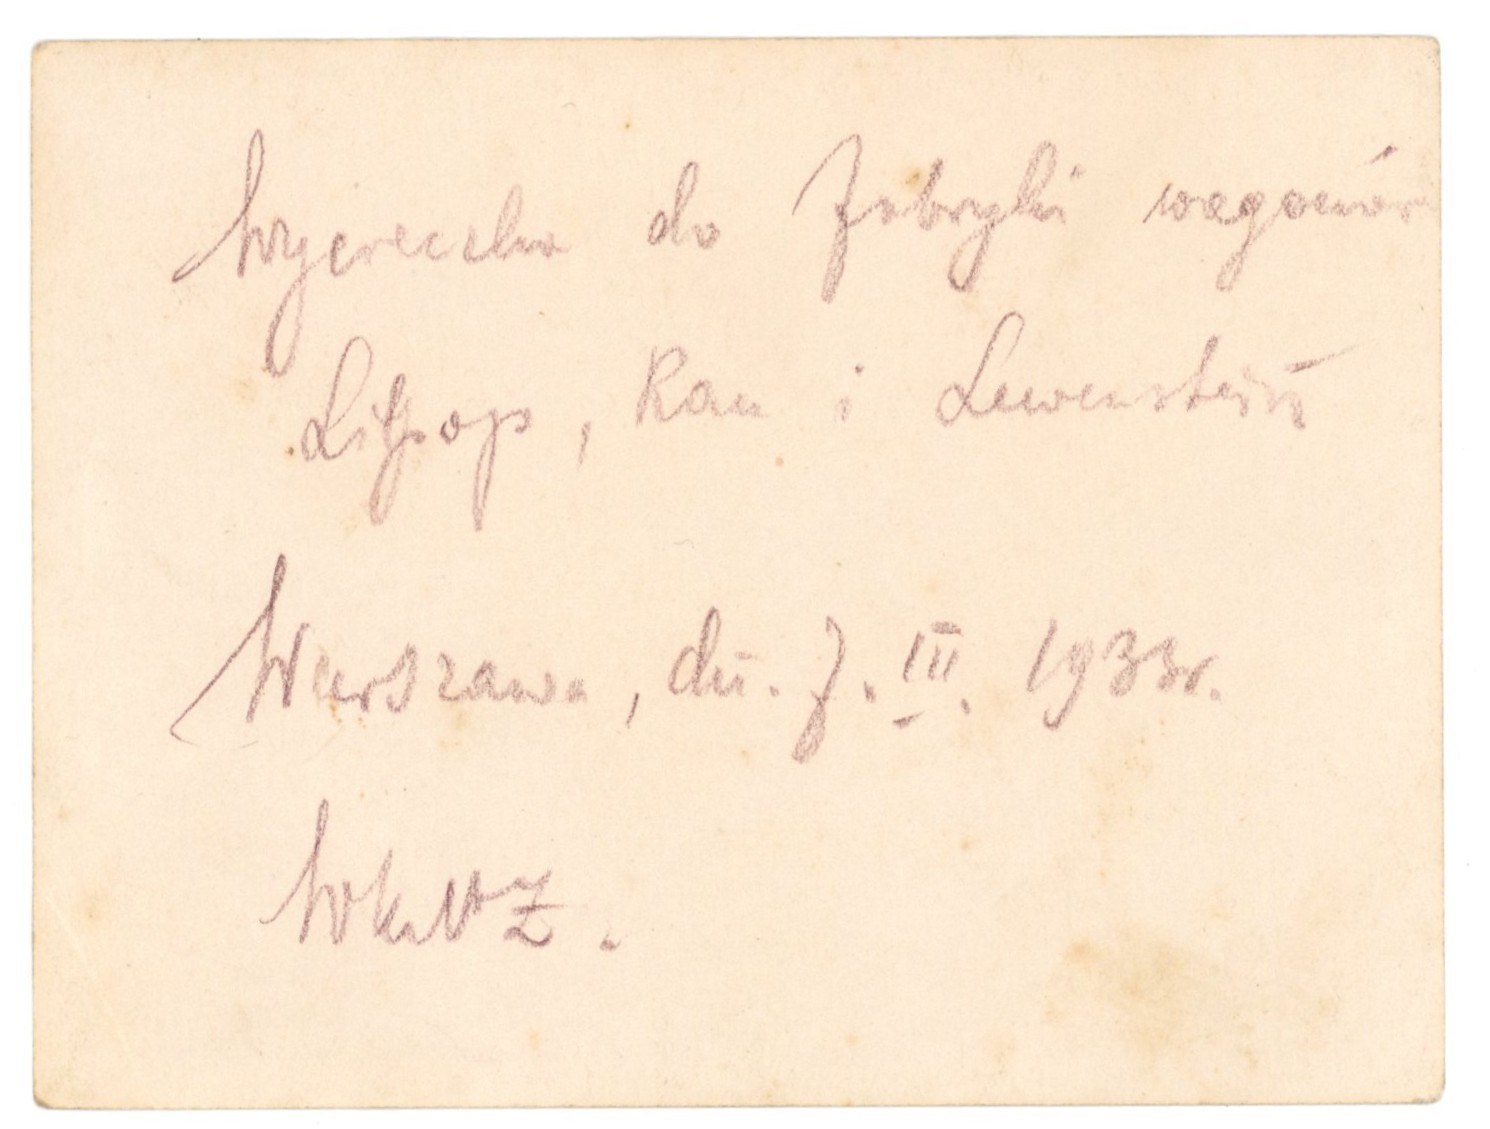 Wycieczka do fabryki wagonów
Lilpop, Rau i Lewenstein
Warszawa, dn. 7. III. 1933r.